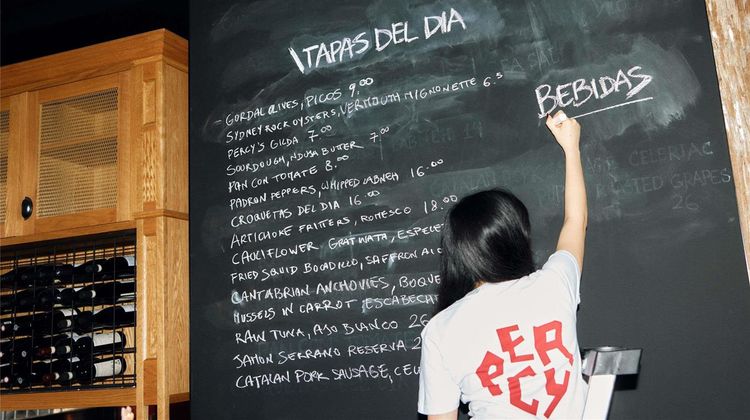 TAPAS DEL DIA
GORDAL OLIVES, PICOS 9.00
SYDNEY ROCK OYSTERS, VERMOUTH MIGNONETTE 6.5
PERCY'S GILDA 7.00
SOURDOUGH, NDUJA BUTTER 7.00
PAN CON TOMATE 8.00
PADRON PEPPERS, WHIPPED LABNEH 16.00
CROQUETAS DEL DIA 16.00
ARTICHOKE FRITTERS, ROMESCO 18.00
CAULIFLOWER GRATINATA, ESPELE
FRIED SQUID BOCADILLO, SAFFRON AIO
CANTABRIAN ANCHOVIES, BOQUE
MUSSELS IN CARROT ESCABECHE
RAW TUNA, AJO BLANCO 26
JAMON SERRANO RESERVA 2
CATALAN PORK SAUSAGE, CEL
BEBIDAS
CELERIAC
GRAPES
26
PERCY